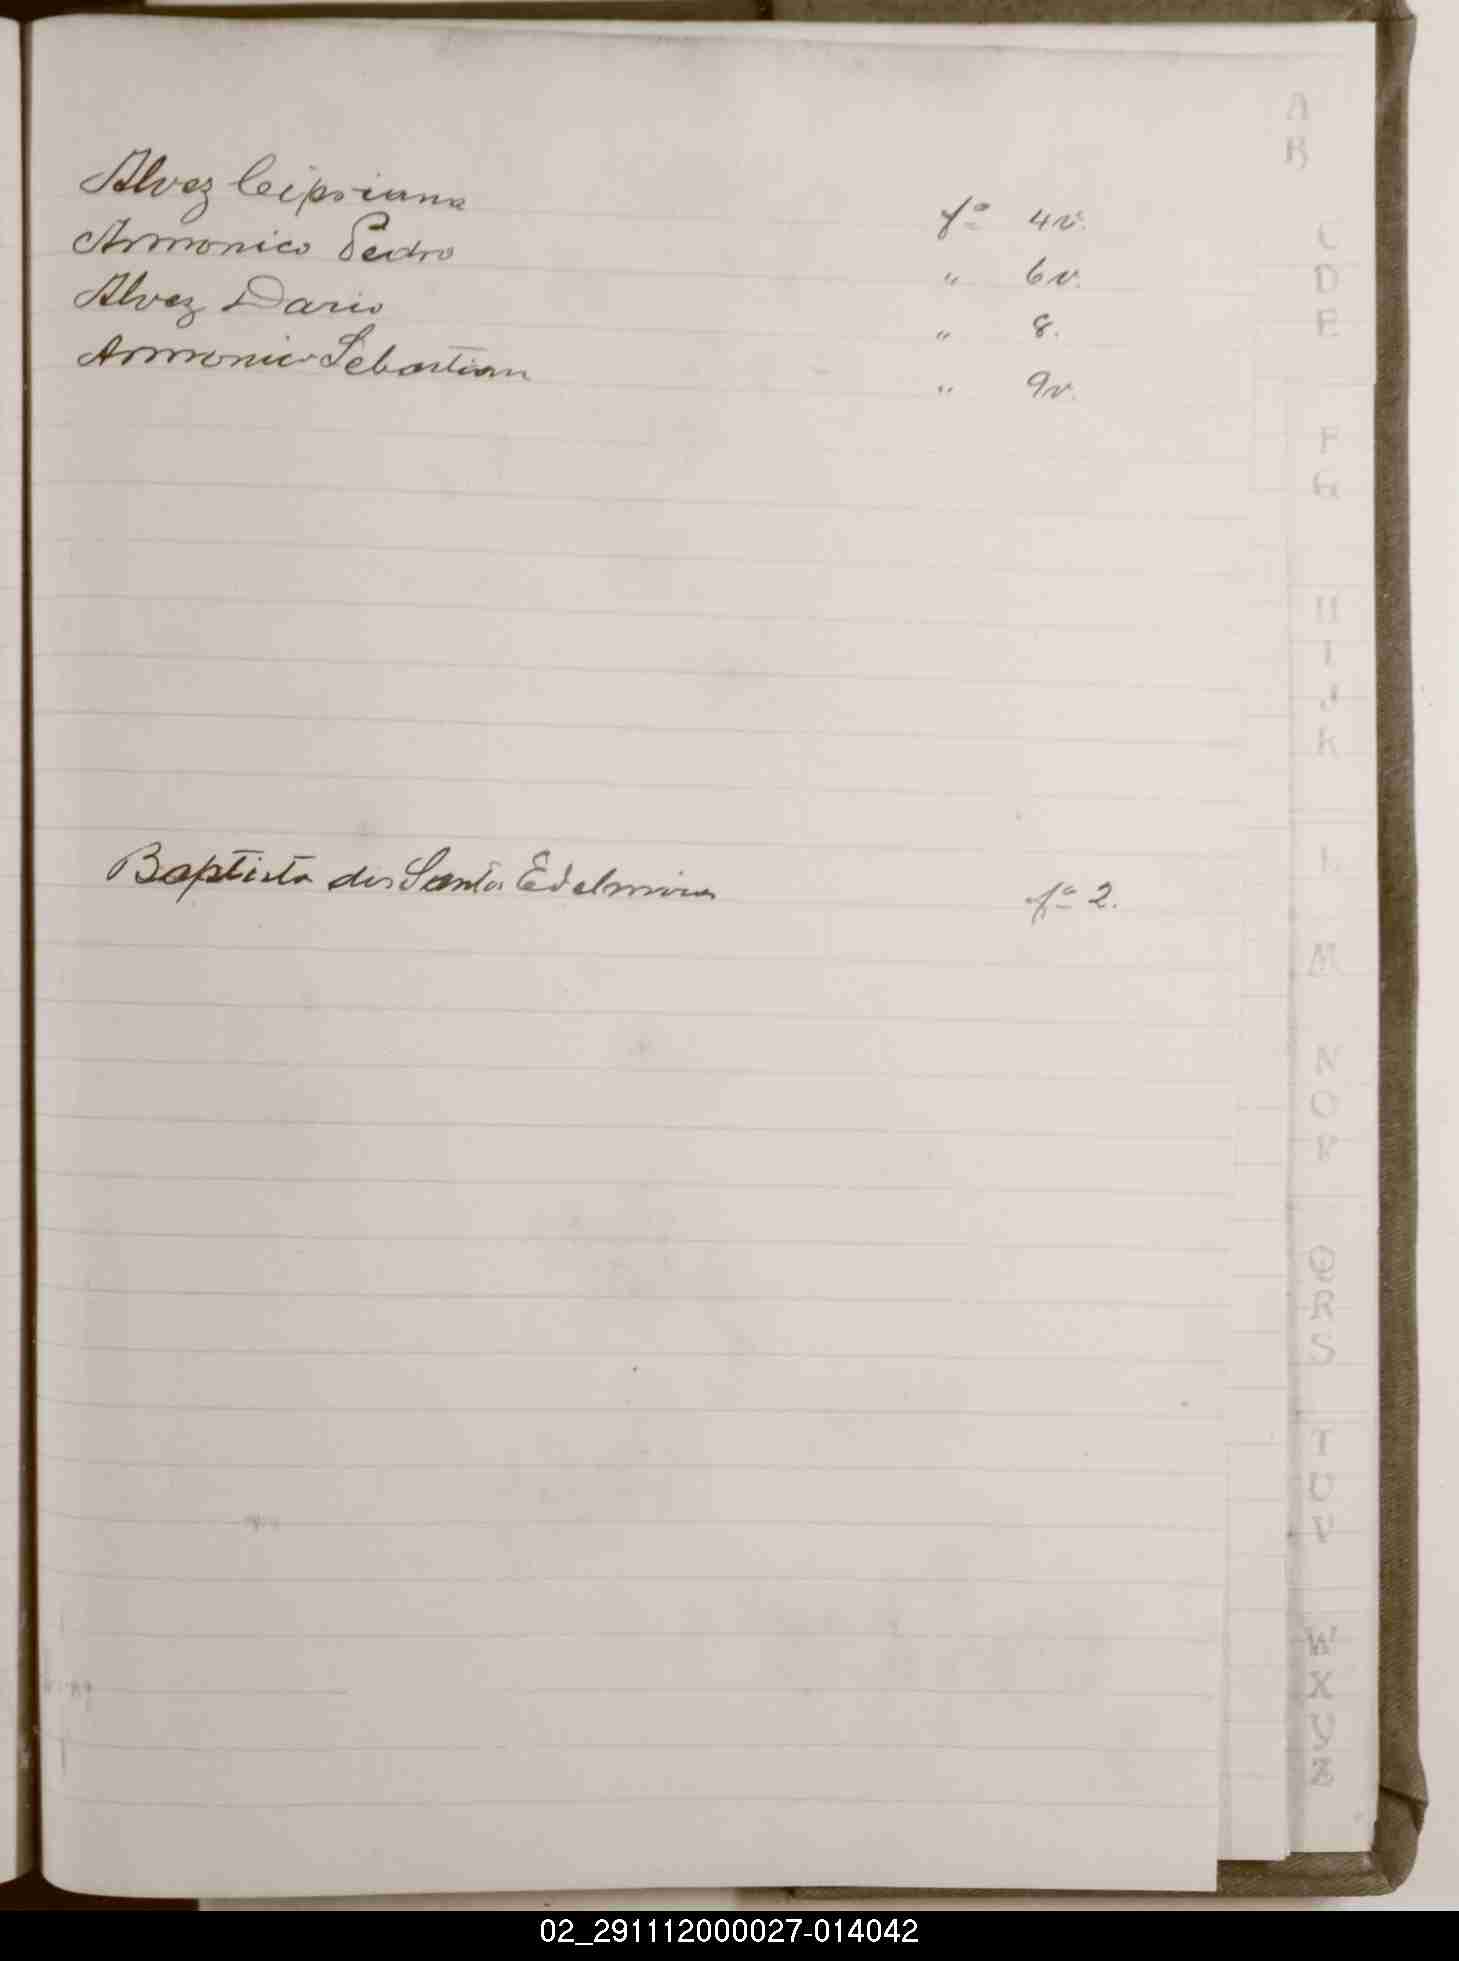 A
B
Alvez Cipriana fº 4v.
Armonico Pedro " 6v.
Alvez Dario " 8.
Armonico Sebastian " 9v.
C
D
E
F
G
H
I
J
K
L
Baptista dos Santos Edelmira fº 2.
M
N
O
P
Q
R
S
T
U
V
W
X
Y
Z
02_291112000027-014042